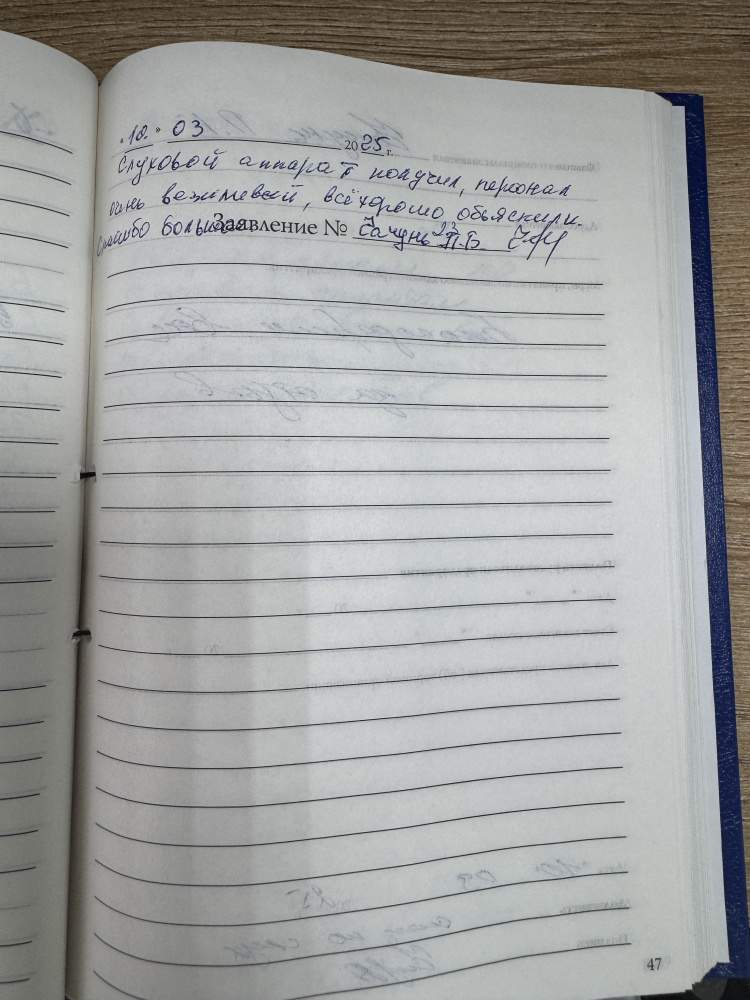 "10." 03 2025 г.
Слуховой аппарат получил, персонал
очень вежливый, всё хорошо объяснили.
Спасибо большое Заявление № 23
П.Б.
47